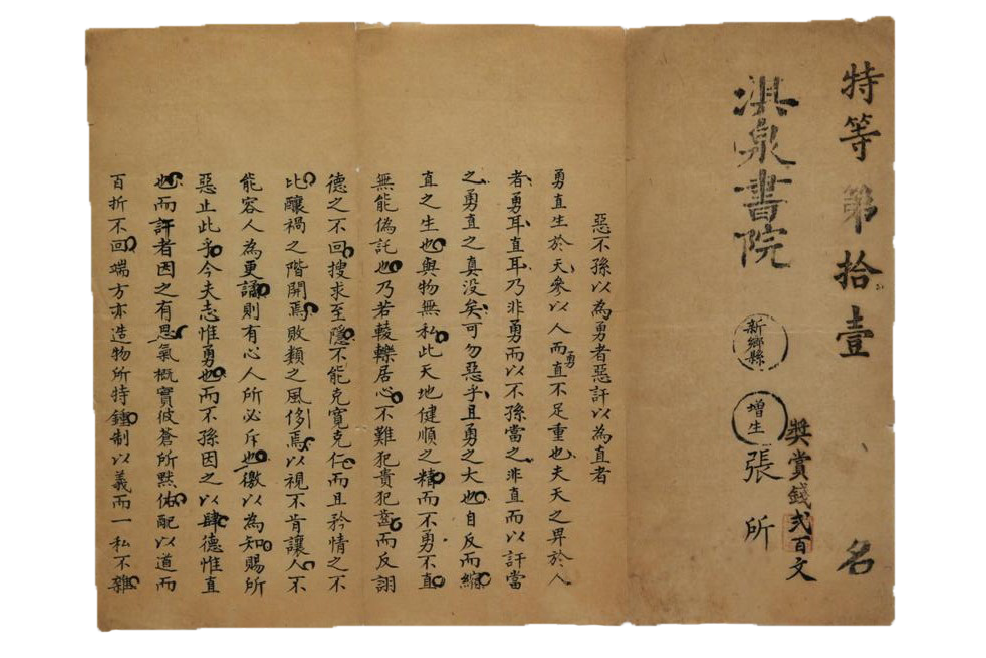 特等第拾壹名
獎賞錢貳百文
淇泉書院
新鄉縣
增生
張所
惡不孫以為勇者惡訐以為直者
勇直生於天參以人而勇直不足重也夫天之畀於人
者勇耳直耳乃非勇而以不孫當之非直而以訐當
之勇直之真没矣可勿惡乎且勇之大也自反而縮
直之生也與物無私此天地健順之精而不勇不直
無能偽託也乃若輘轢居心不難犯貴犯齒而反詡
德之不回搜求至隱不能克寬克仁而且矜情之不
比釀禍之階開焉敗類之風侈焉以視不肯讓人不
能容人為更譎則有心人所必斥也徼以為知賜所
惡止此乎今夫志惟勇也而不孫因之以肆德惟直
也而訐者因之有思氣概實彼蒼所黙佑配以道而
百折不回端方亦造物所特鍾制以義而一私不雜